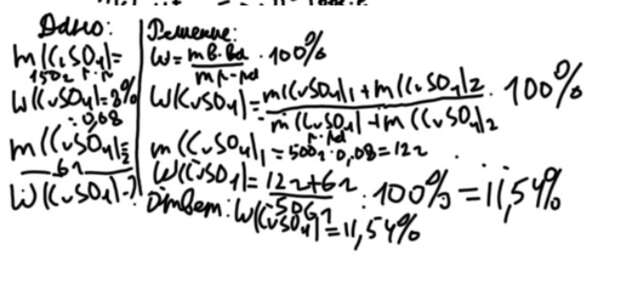 Дано:
m(CuSO4)=
150г р-р
W(CuSO4)=8%
=0,08
m(CuSO4)2=
6г
W(CuSO4)-?
Решение:
W= mв-ва / mр-ра · 100%
W(CuSO4)= m(CuSO4)1+m(CuSO4)2 / m(CuSO4)+m(CuSO4)2 · 100%
р-ра
m(CuSO4)1=500г·0,08=12г
W(CuSO4)= 12г+6г / 506г · 100%=11,54%
Ответ: W(CuSO4)=11,54%